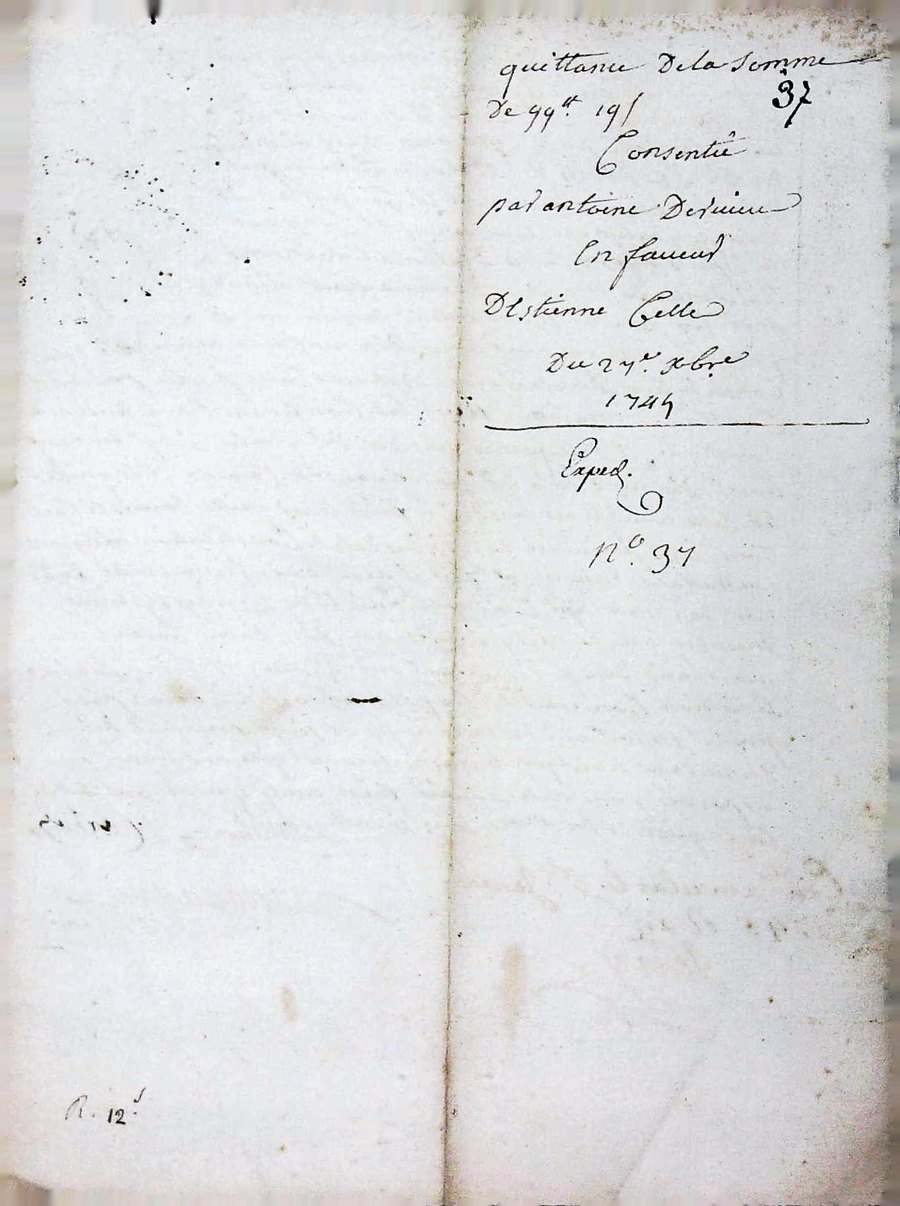 quittance Dela Somme
37
De 99lt 19s
Consentie
par antoine Deruieu
En faueur
DEstienne Celle
Du 27e xbre
1744
Exped.
n° 37
R. 12s